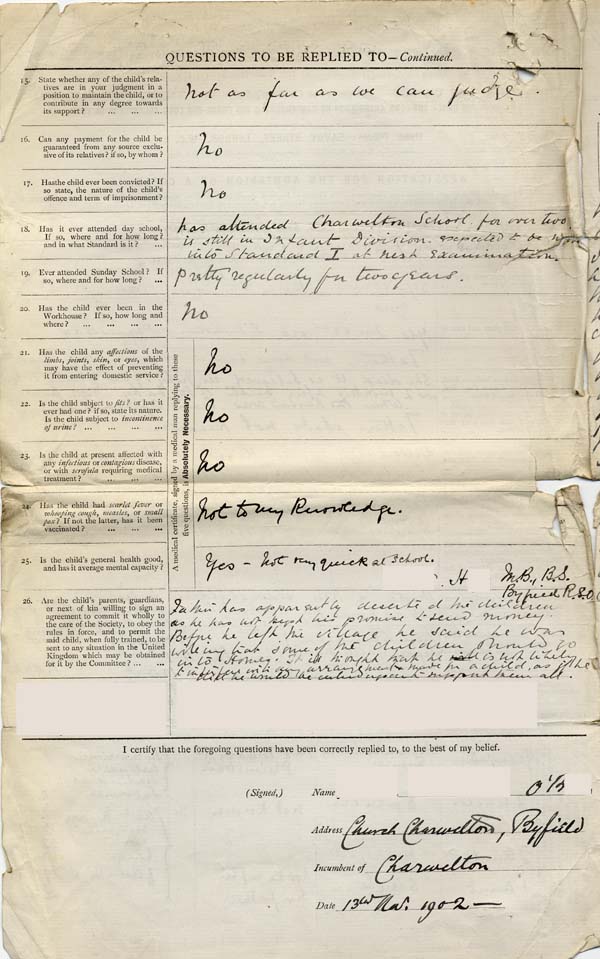 QUESTIONS TO BE REPLIED TO—Continued.
15. State whether any of the child's rela-
tives are in your judgment in a
position to maintain the child, or to
contribute in any degree towards
its support? ... ... ...
Not as far as we can judge.
16. Can any payment for the child be
guaranteed from any source exclu-
sive of its relatives? if so, by whom?
No
17. Has the child ever been convicted? If
so state, the nature of the child's
offence and term of imprisonment?
No
18. Has it ever attended day school,
If so, where and for how long?
and in what Standard is it? ...
has attended Charwelton School for over two
is still in Infant Division. expected to be
into Standard I at next Examination.
19. Ever attended Sunday School? If
so, where and for how long? ...
Pretty regularly for two years.
20. Has the child ever been in the
Workhouse? If so, how long and
where? ... ... ... ...
No
A medical certificate, signed by a medical man replying to these
five questions, is Absolutely Necessary.
21. Has the child any affections of the
limbs, joints, skin, or eyes, which
may have the effect of preventing
it from entering domestic service?
No
22. Is the child subject to fits? or has it
ever had one? if so, state its nature.
Is the child subject to incontinence
of urine? ... ... ... ...
No
23. Is the child at present affected with
any infectious or contagious disease,
or with scrofula requiring medical
treatment? ... ... ... ...
No
24. Has the child had scarlet fever or
whooping cough, measles, or small
pox? If not the latter, has it been
vaccinated? ... ... ...
Not to my Knowledge.
25. Is the child's general health good,
and has it average mental capacity?
Yes - Not very quick at School.
H M.B., B.S.
Byfield R.S.O
26. Are the child's parents, guardians,
or next of kin willing to sign an
agreement to commit it wholly to
the care of the Society, to obey the
rules in force, and to permit the
said child, when fully trained, to be
sent to any situation in the United
Kingdom which may be obtained
for it by the Committee? ... ...
Father has apparently deserted the children
as he has not kept his promise to send money.
Before he left the village he said he was
willing that some of the children should go
into Homes. It is thought that he is not likely
to interfere with any arrangement made for a child, as if he
did he would be called upon to support them all.
I certify that the foregoing questions have been correctly replied to, to the best of my belief.
(Signed,) Name
Address Church Charwelton, Byfield
Incumbent of Charwelton
Date 13th Nov. 1902 —